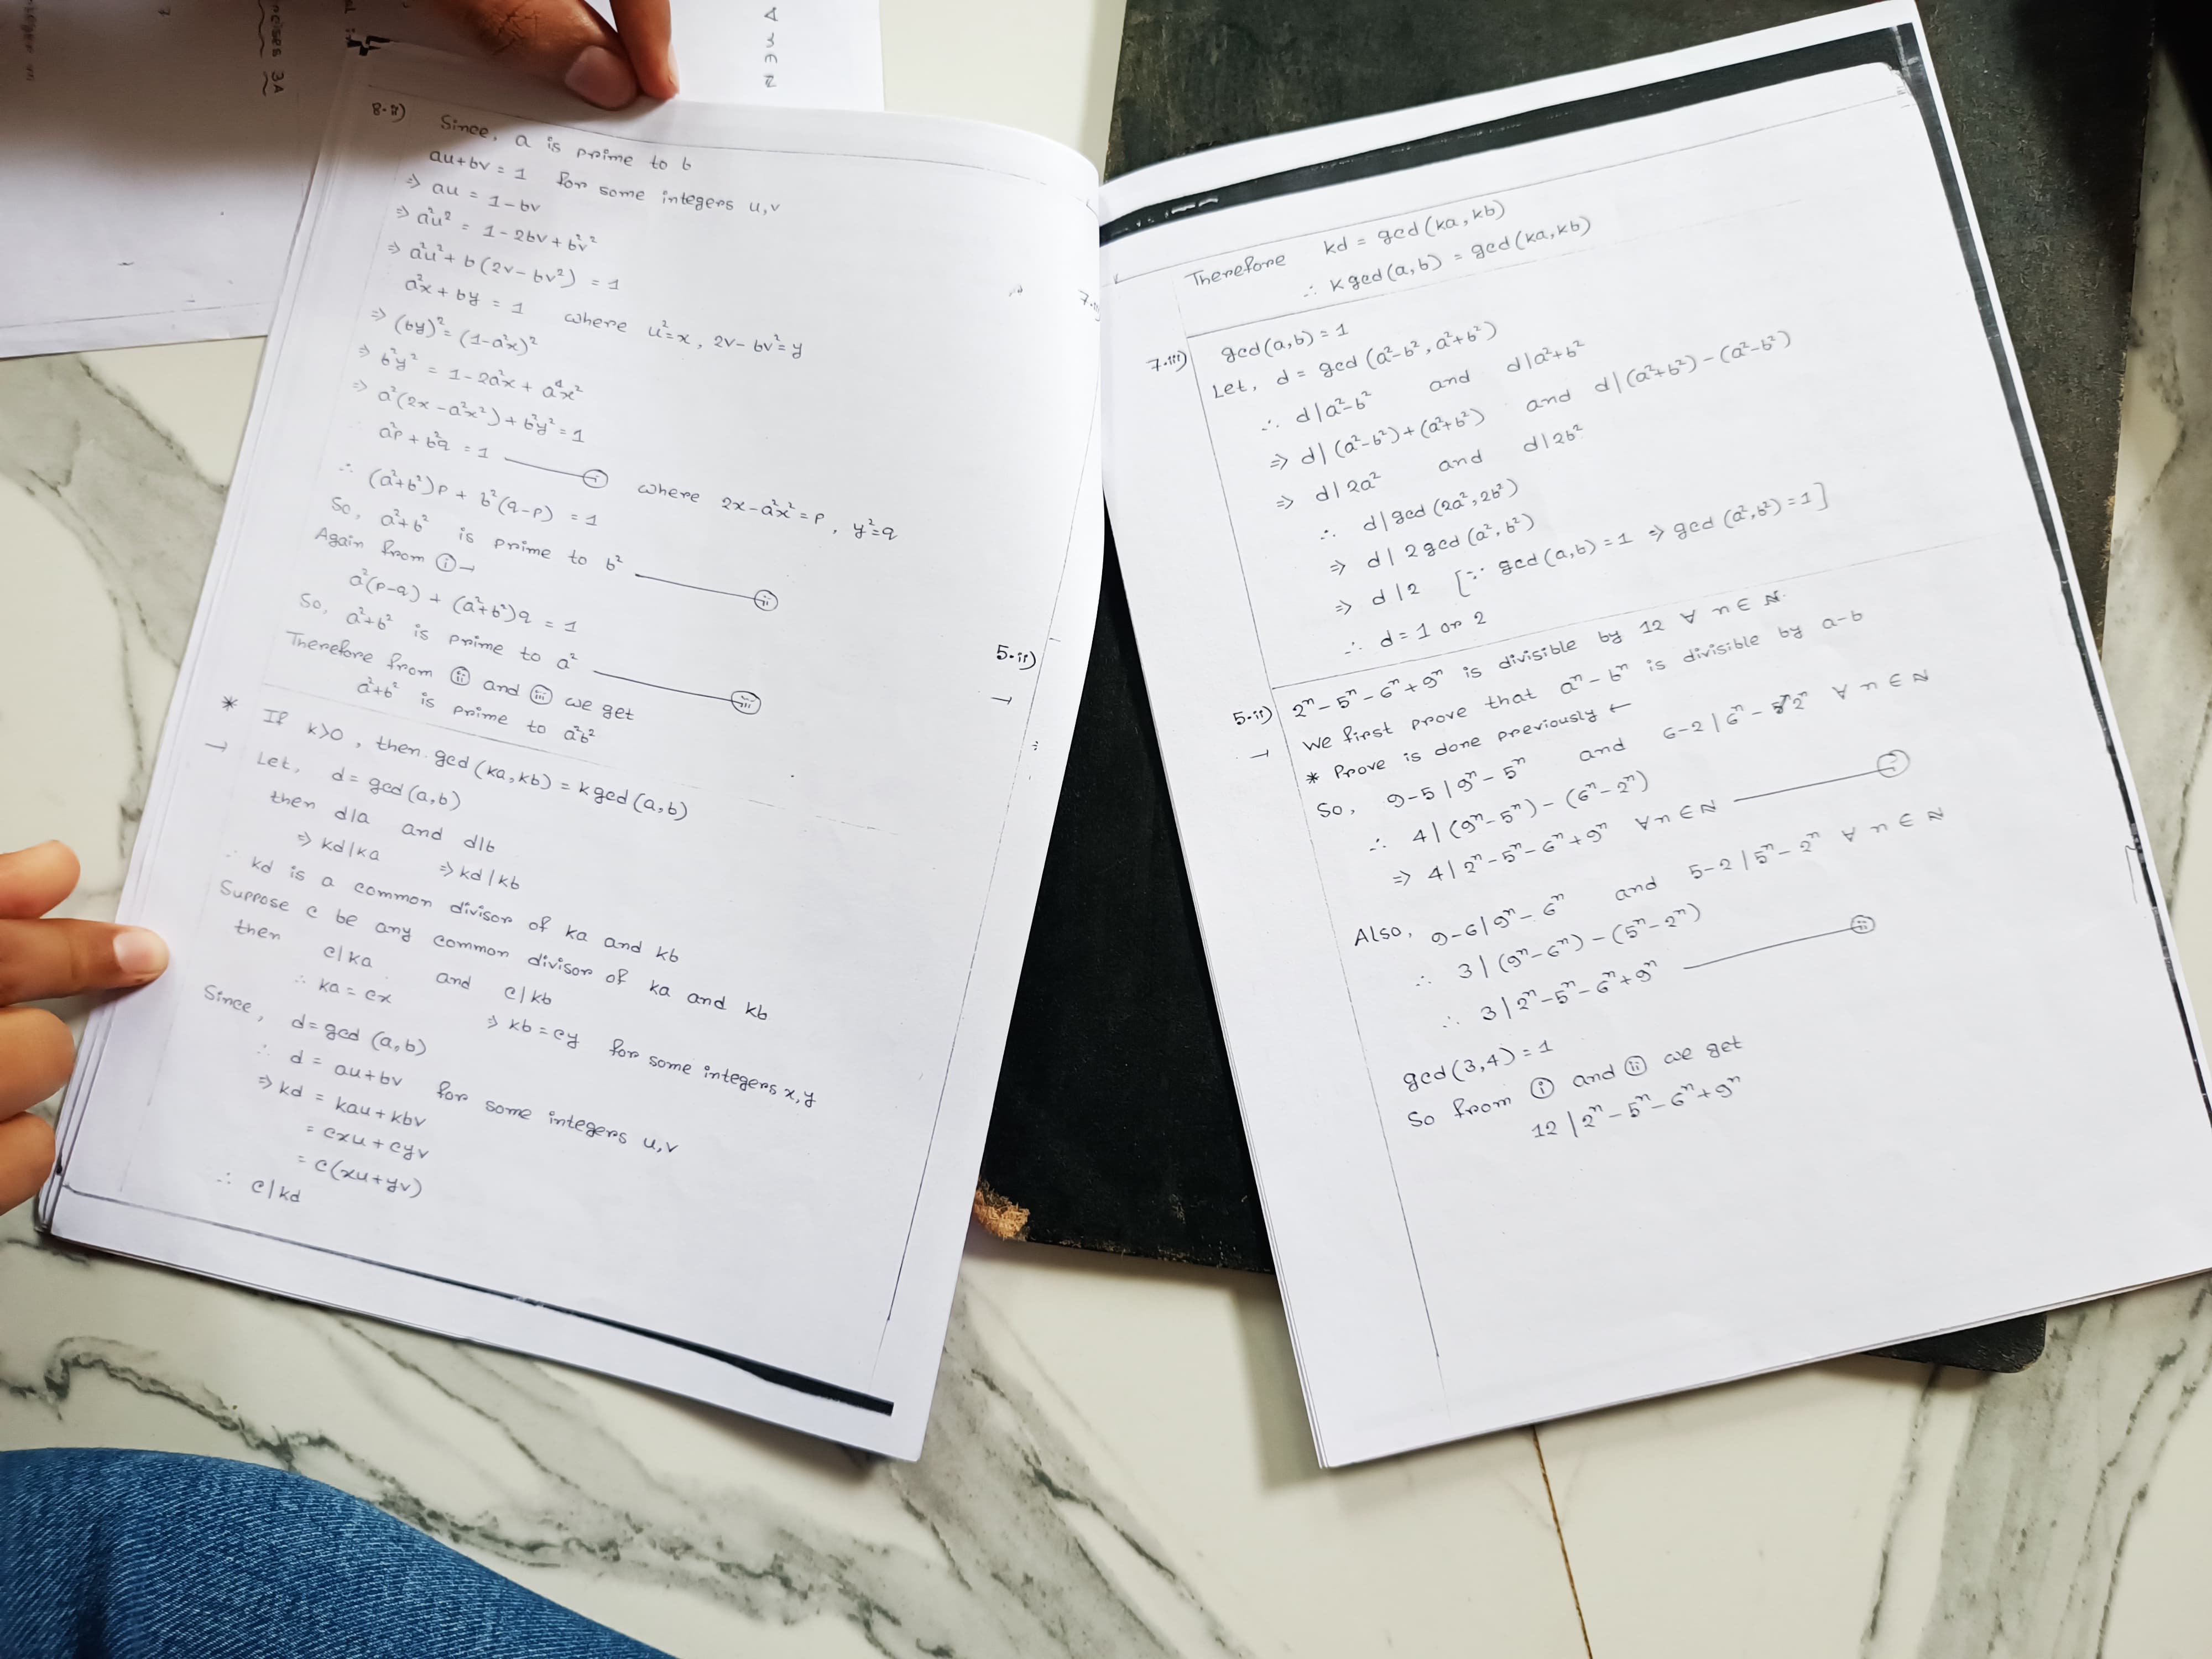 ercises 3A
8.ii)
Since, a is prime to b
au+bv = 1 for some integers u,v
⇒ au = 1-bv
⇒ a²u² = 1-2bv+b²v²
⇒ a²u²+b(2v-bv²) = 1
a²x+by = 1 where u²=x, 2v-bv²=y
⇒ (by)²=(1-a²x)²
⇒ b²y² = 1-2a²x+a⁴x²
⇒ a²(2x-a²x²)+b²y²=1
a²p+b²q = 1 ——— (i) where 2x-a²x²=p, y²=q
∴ (a²+b²)p + b²(q-p) = 1
So, a²+b² is prime to b² ——— (ii)
Again from (i)→
a²(p-q) + (a²+b²)q = 1
So, a²+b² is prime to a² ——— (iii)
Therefore from (ii) and (iii) we get
a²+b² is prime to a²b²
* If k>0, then gcd(ka,kb) = k gcd(a,b)
→ Let, d=gcd(a,b)
then d|a and d|b
⇒ kd|ka ⇒ kd|kb
∴ kd is a common divisor of ka and kb
Suppose c be any common divisor of ka and kb
then c|ka and c|kb
∴ ka=cx ⇒ kb=cy for some integers x,y
Since, d=gcd(a,b)
∴ d = au+bv for some integers u,v
⇒ kd = kau+kbv
= cxu+cyv
= c(xu+yv)
∴ c|kd
5.ii)
→
Therefore kd = gcd(ka,kb)
∴ k gcd(a,b) = gcd(ka,kb)
7.iii) gcd(a,b)=1
Let, d = gcd(a²-b², a²+b²)
∴ d|a²-b² and d|a²+b²
⇒ d|(a²-b²)+(a²+b²) and d|(a²+b²)-(a²-b²)
⇒ d|2a² and d|2b²
∴ d|gcd(2a²,2b²)
⇒ d|2gcd(a²,b²)
⇒ d|2 [∵ gcd(a,b)=1 ⇒ gcd(a²,b²)=1]
∴ d=1 or 2
5.ii) 2ⁿ-5ⁿ-6ⁿ+9ⁿ is divisible by 12 ∀ n∈N.
→ We first prove that aⁿ-bⁿ is divisible by a-b
* Prove is done previously ←
So, 9-5|9ⁿ-5ⁿ and 6-2|6ⁿ-2ⁿ ∀ n∈N
∴ 4|(9ⁿ-5ⁿ)-(6ⁿ-2ⁿ)
⇒ 4|2ⁿ-5ⁿ-6ⁿ+9ⁿ ∀n∈N ——— (i)
Also, 9-6|9ⁿ-6ⁿ and 5-2|5ⁿ-2ⁿ ∀ n∈N
∴ 3|(9ⁿ-6ⁿ)-(5ⁿ-2ⁿ)
∴ 3|2ⁿ-5ⁿ-6ⁿ+9ⁿ ——— (ii)
gcd(3,4)=1
So from (i) and (ii) we get
12|2ⁿ-5ⁿ-6ⁿ+9ⁿ